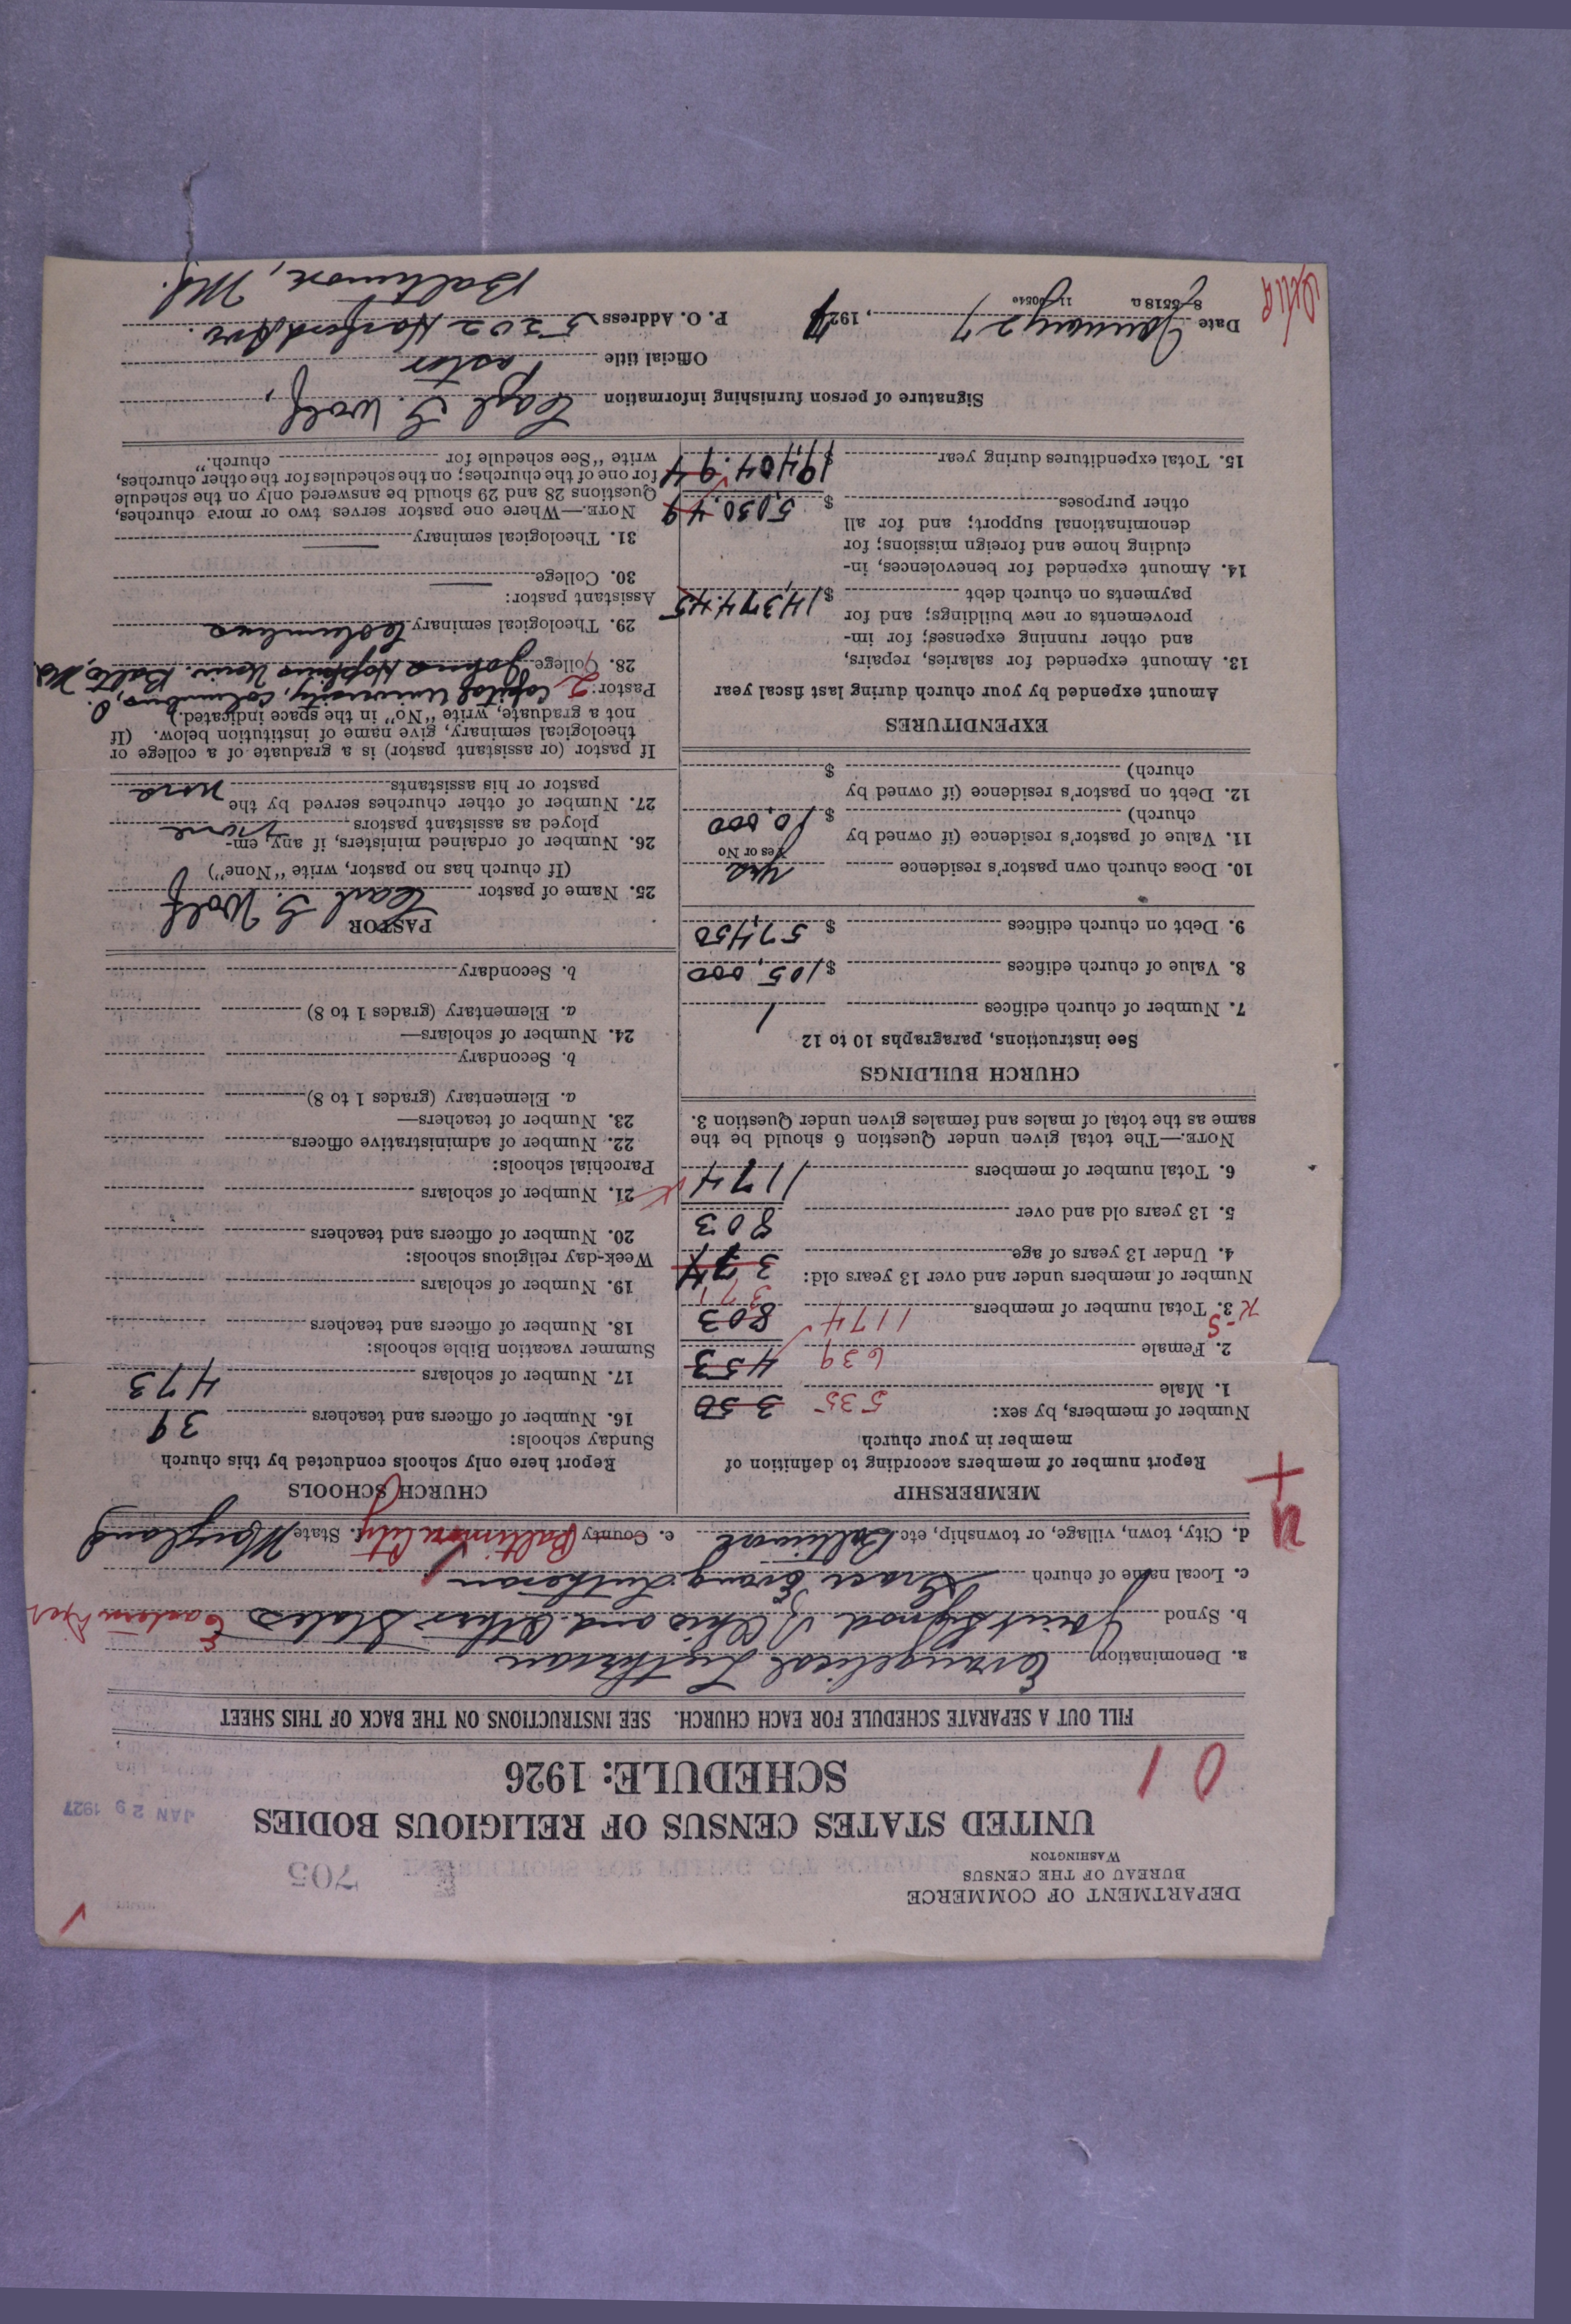 DEPARTMENT OF COMMERCE
BUREAU OF THE CENSUS
WASHINGTON
705
UNITED STATES CENSUS OF RELIGIOUS BODIES
SCHEDULE: 1926
JAN 29 1927
0 1
FILL OUT A SEPARATE SCHEDULE FOR EACH CHURCH. SEE INSTRUCTIONS ON THE BACK OF THIS SHEET
a. Denomination Evangelical Lutheran
b. Synod Joint Synod of Ohio and Other States Eastern Dist
c. Local name of church Grace Evang. Lutheran
d. City, town, village, or township, etc. Baltimore e. County Baltimore City f. State Maryland
MEMBERSHIP
Report number of members according to definition of
member in your church
Number of members, by sex:
1. Male 535 350
2. Female 639 453
3. Total number of members 1174 803
Number of members under and over 13 years old:
371
4. Under 13 years of age 374
5. 13 years old and over 803
6. Total number of members 1174
NOTE.—The total given under Question 6 should be the
same as the total of males and females given under Question 3.
CHURCH BUILDINGS
See instructions, paragraphs 10 to 12
7. Number of church edifices 1
8. Value of church edifices $105,000
9. Debt on church edifices $57,450
10. Does church own pastor's residence Yes
Yes or No
11. Value of pastor's residence (if owned by
church) $10,000
12. Debt on pastor's residence (if owned by
church) $
EXPENDITURES
Amount expended by your church during last fiscal year
13. Amount expended for salaries, repairs,
and other running expenses; for im-
provements or new buildings; and for
payments on church debt $14,374.45
14. Amount expended for benevolences, in-
cluding home and foreign missions; for
denominational support; and for all
other purposes $5,030.49
15. Total expenditures during year $19,404.94
CHURCH SCHOOLS
Report here only schools conducted by this church
Sunday schools:
16. Number of officers and teachers 39
17. Number of scholars 473
Summer vacation Bible schools:
18. Number of officers and teachers
19. Number of scholars
Week-day religious schools:
20. Number of officers and teachers
21. Number of scholars
Parochial schools:
22. Number of administrative officers
23. Number of teachers—
a. Elementary (grades 1 to 8)
b. Secondary
24. Number of scholars—
a. Elementary (grades 1 to 8)
b. Secondary
PASTOR
25. Name of pastor Carl G. Wolf
(If church has no pastor, write "None")
26. Number of ordained ministers, if any, em-
ployed as assistant pastors None
27. Number of other churches served by the
pastor or his assistants None
If pastor (or assistant pastor) is a graduate of a college or
theological seminary, give name of institution below. (If
not a graduate, write "No" in the space indicated.)
Pastor: 2 Capital University, Columbus, O.
28. College Johns Hopkins Univ. Balto, Md.
29. Theological seminary Columbus
Assistant pastor:
30. College
31. Theological seminary
NOTE.—Where one pastor serves two or more churches,
Questions 28 and 29 should be answered only on the schedule
for one of the churches; on the schedules for the other churches,
write "See schedule for church."
Signature of person furnishing information Carl G. Wolf,
Official title Pastor
Date January 27, 1927 P. O. Address 5202 Harford Ave.
8—5518a 11—9054e Baltimore, Md.